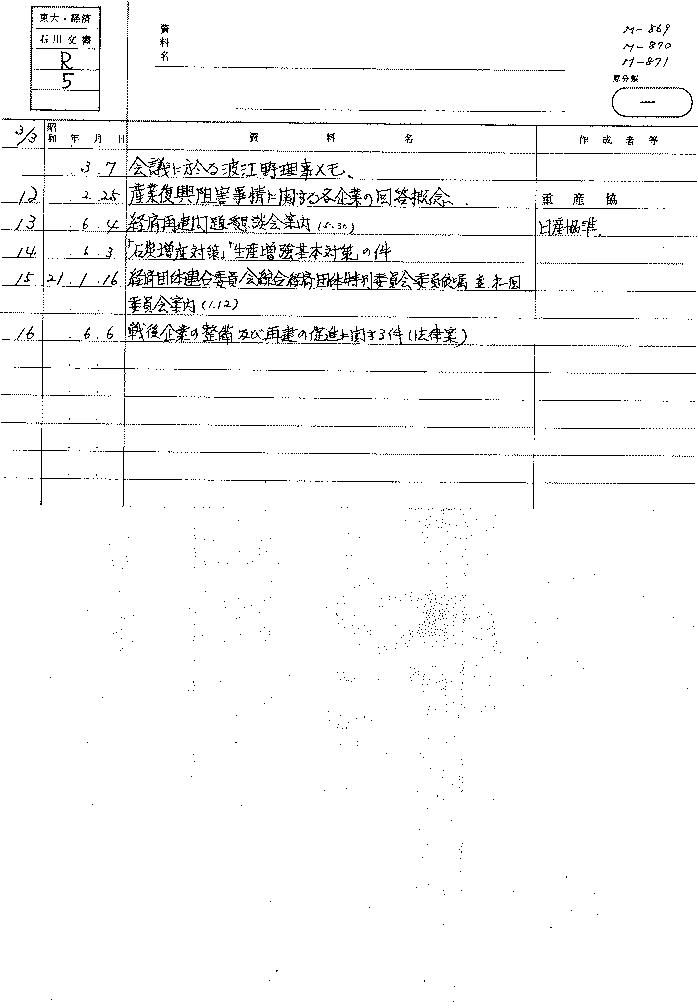 東大・経済
石川文書
R
5
資料名
M-869
M-870
M-871
原分類
一
3/3 昭和 年 月 日 資 料 名 作 成 者 等
3.7 会議に於る波江野理事メモ、
12 2.25 産業復興阻害事情に関する各企業の回答概念、 重 産 協
13 6.4 経済再建問題懇談会案内(5.30) 日産協準
14 6.3 「石炭増産対策」「生産増強基本対策」の件
15 21.1.16 経済団体連合委員会綜合経済団体特別委員会委員委嘱並才一回
委員会案内(1.12)
16 6.6 戦後企業の整備及び再建の促進に関する件(法律案)